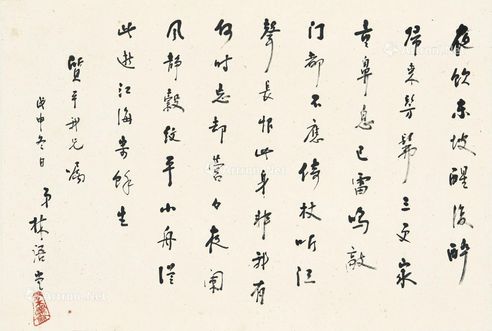 夜飲东坡醒復醉
歸来髣髴三更家
童鼻息已雷鳴敲
门都不應倚杖听江
聲長恨此身非我有
何时忘却營々夜闌
风静縠纹平小舟從
此逝江海寄餘生
質平我兄嘱
戊申冬日 弟林语堂